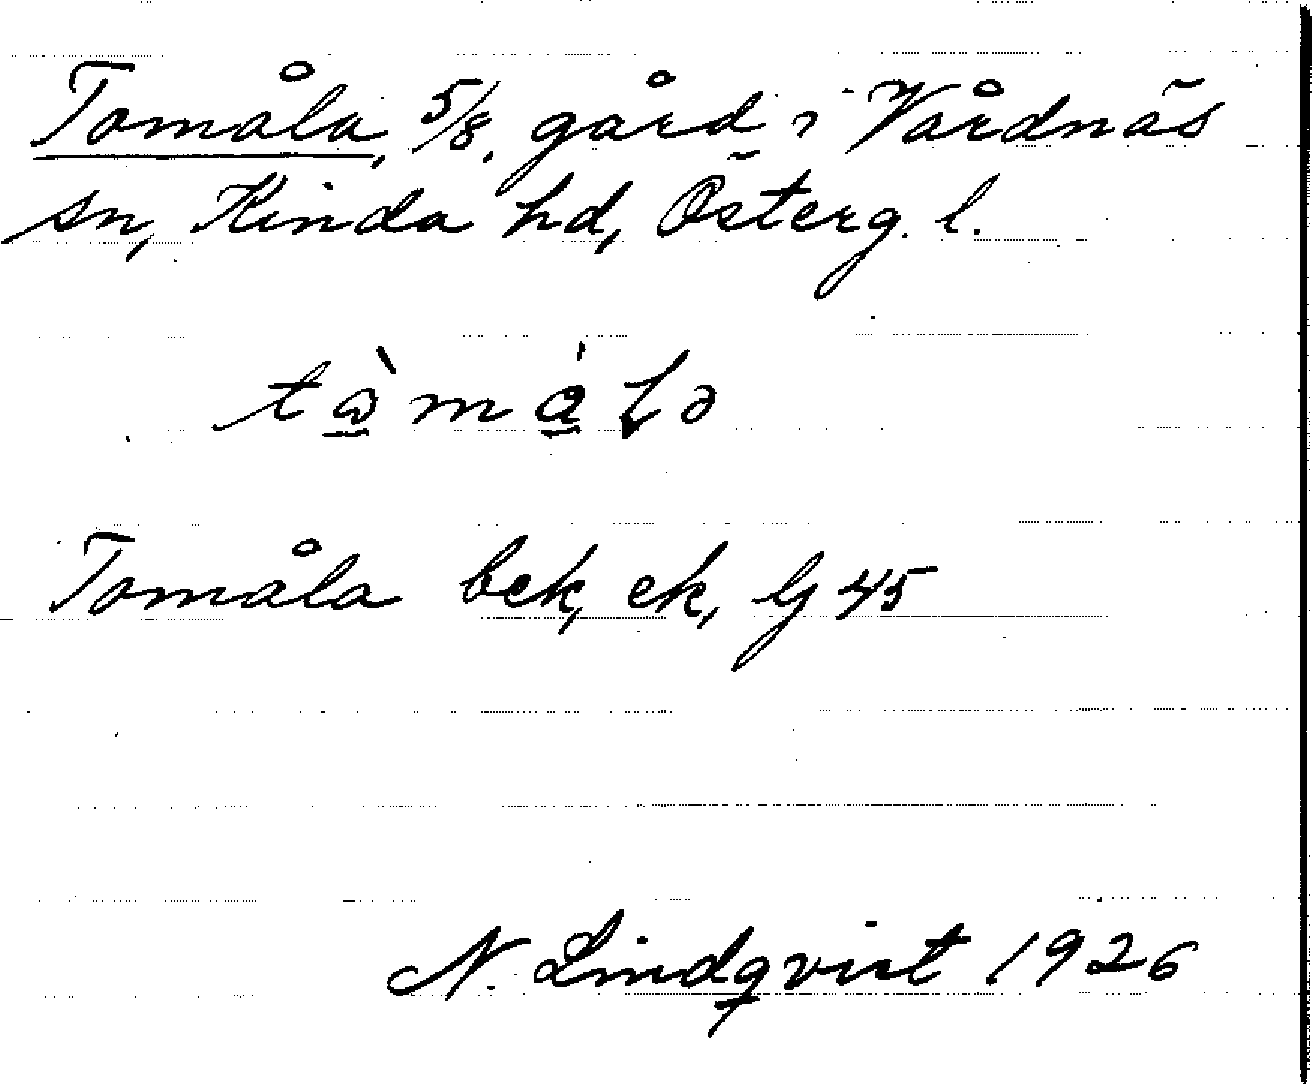 Tomåla, 5/8, gård i Vårdnäs
sn, Kinda hd, Österg. l.
Tomåla bek, ek, Lj 45
N. Lindqvist 1926